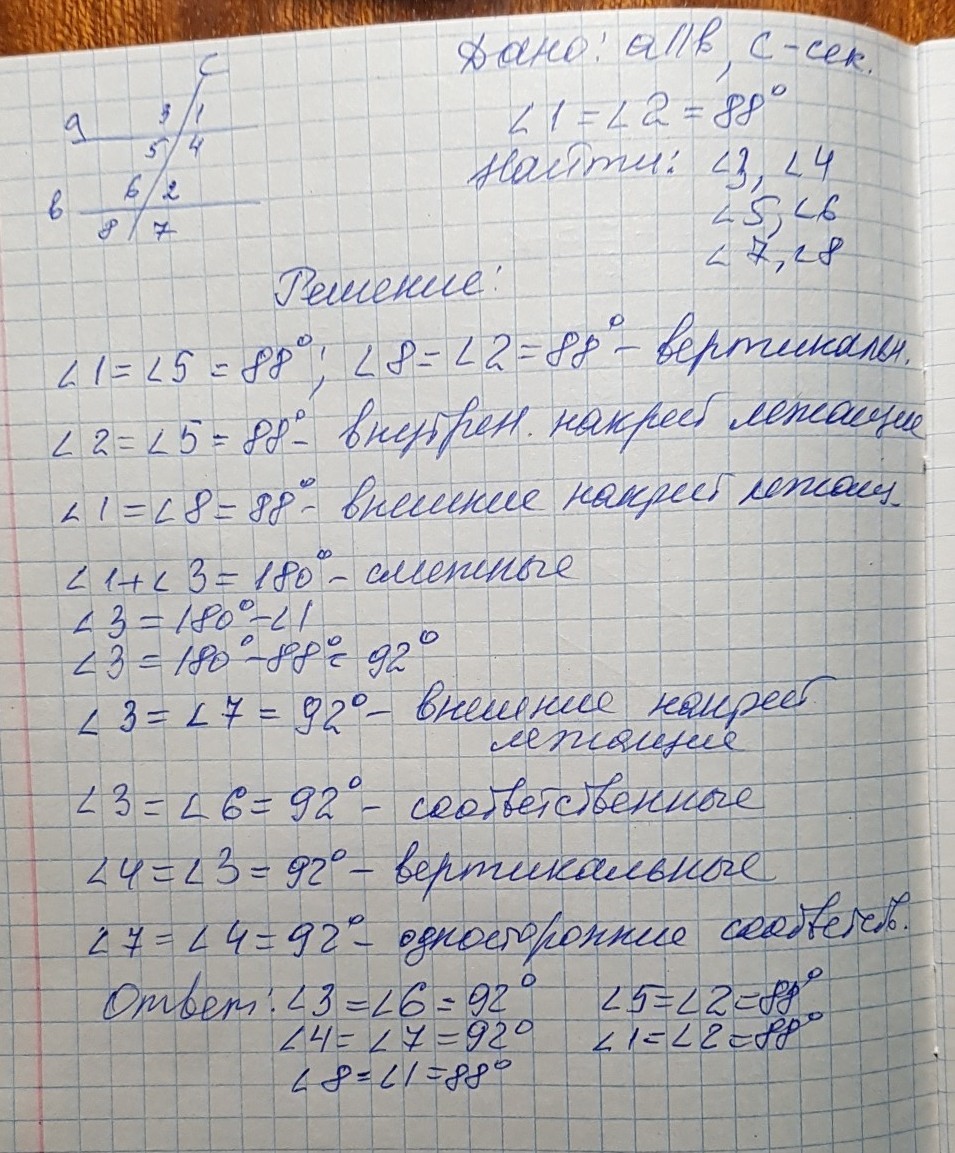 c
a 3 1
5 4
в 6 2
8 7
Дано: a||в, с-сек.
∠1=∠2=88°
Найти: ∠3, ∠4
∠5, ∠6
∠7, ∠8
Решение:
∠1=∠5=88°; ∠8=∠2=88° - вертикальн.
∠2=∠5=88° - внутрен. накрест лежащие
∠1=∠8=88° - внешние накрест лежащ.
∠1+∠3=180° - смежные
∠3=180°-∠1
∠3=180°-88°=92°
∠3=∠7=92° - внешние накрест
лежащие
∠3=∠6=92° - соответственные
∠4=∠3=92° - вертикальные
∠7=∠4=92° - односторонние соответств.
Ответ: ∠3=∠6=92° ∠5=∠2=88°
∠4=∠7=92° ∠1=∠2=88°
∠8=∠1=88°